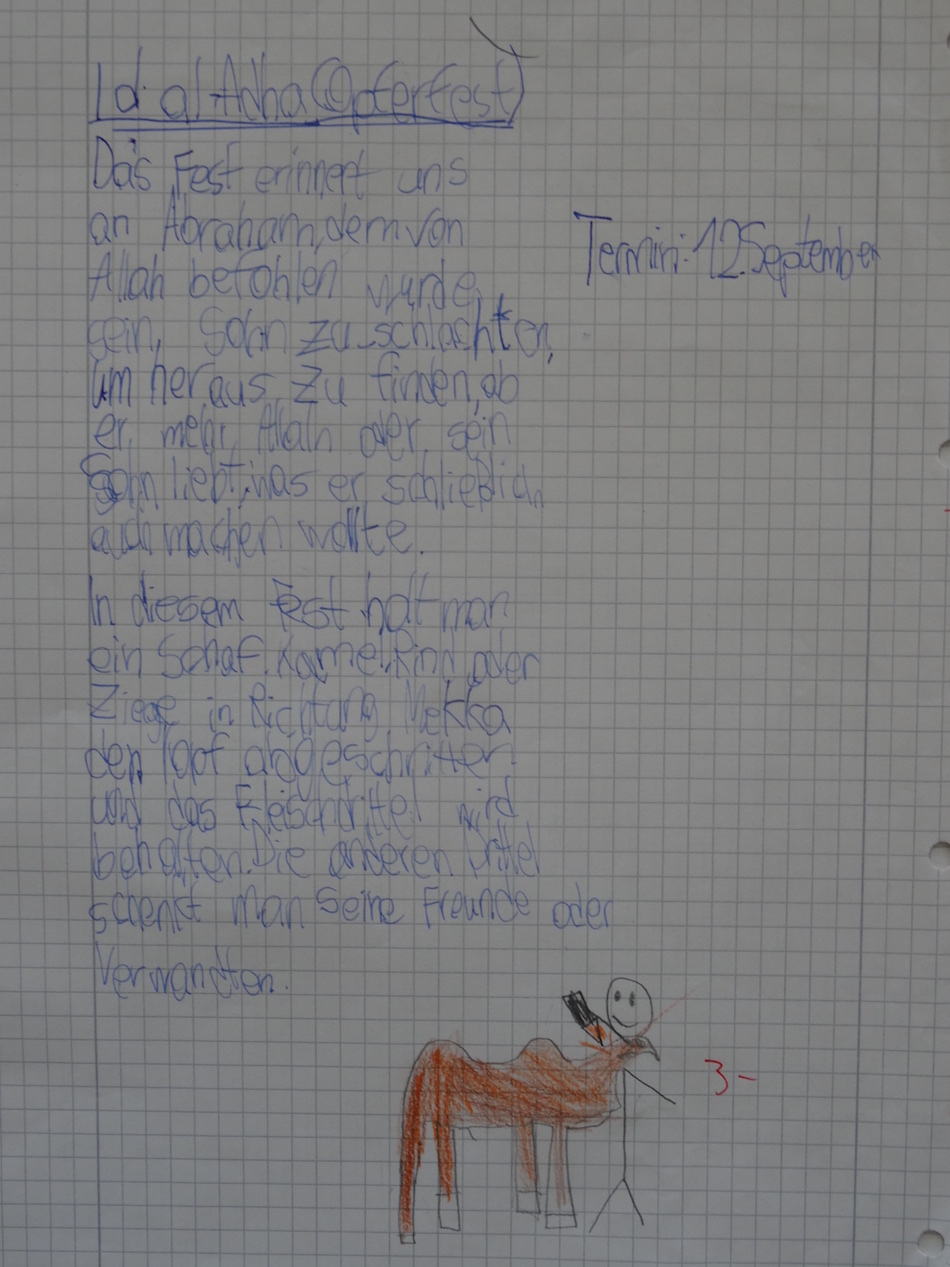 Id al-Adha (Opferfest)
Das Fest erinnert uns
an Abraham, dem von
Allah befohlen wurde,
sein, Sohn zu schlachten,
um heraus zu finden, ob
er mehr Allah oder sein
Sohn liebt, was er schließlich
auch machen wollte.
Termin: 12. September
In diesem Fest hat man
ein Schaf, Kamel, Rind oder
Ziege in Richtung Mekka
den Kopf abgeschnitten
und das Fleischdrittel wird
behalten. Die anderen Drittel
schenkt man seine Freunde oder
Verwandten.
3-